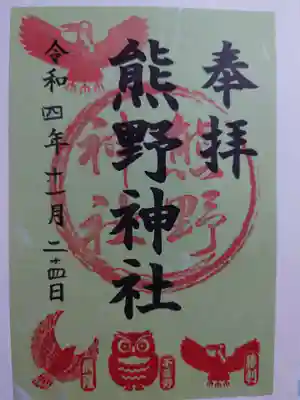 奉拝
熊野神社
令和四年十一月二十四日
熊野
神社